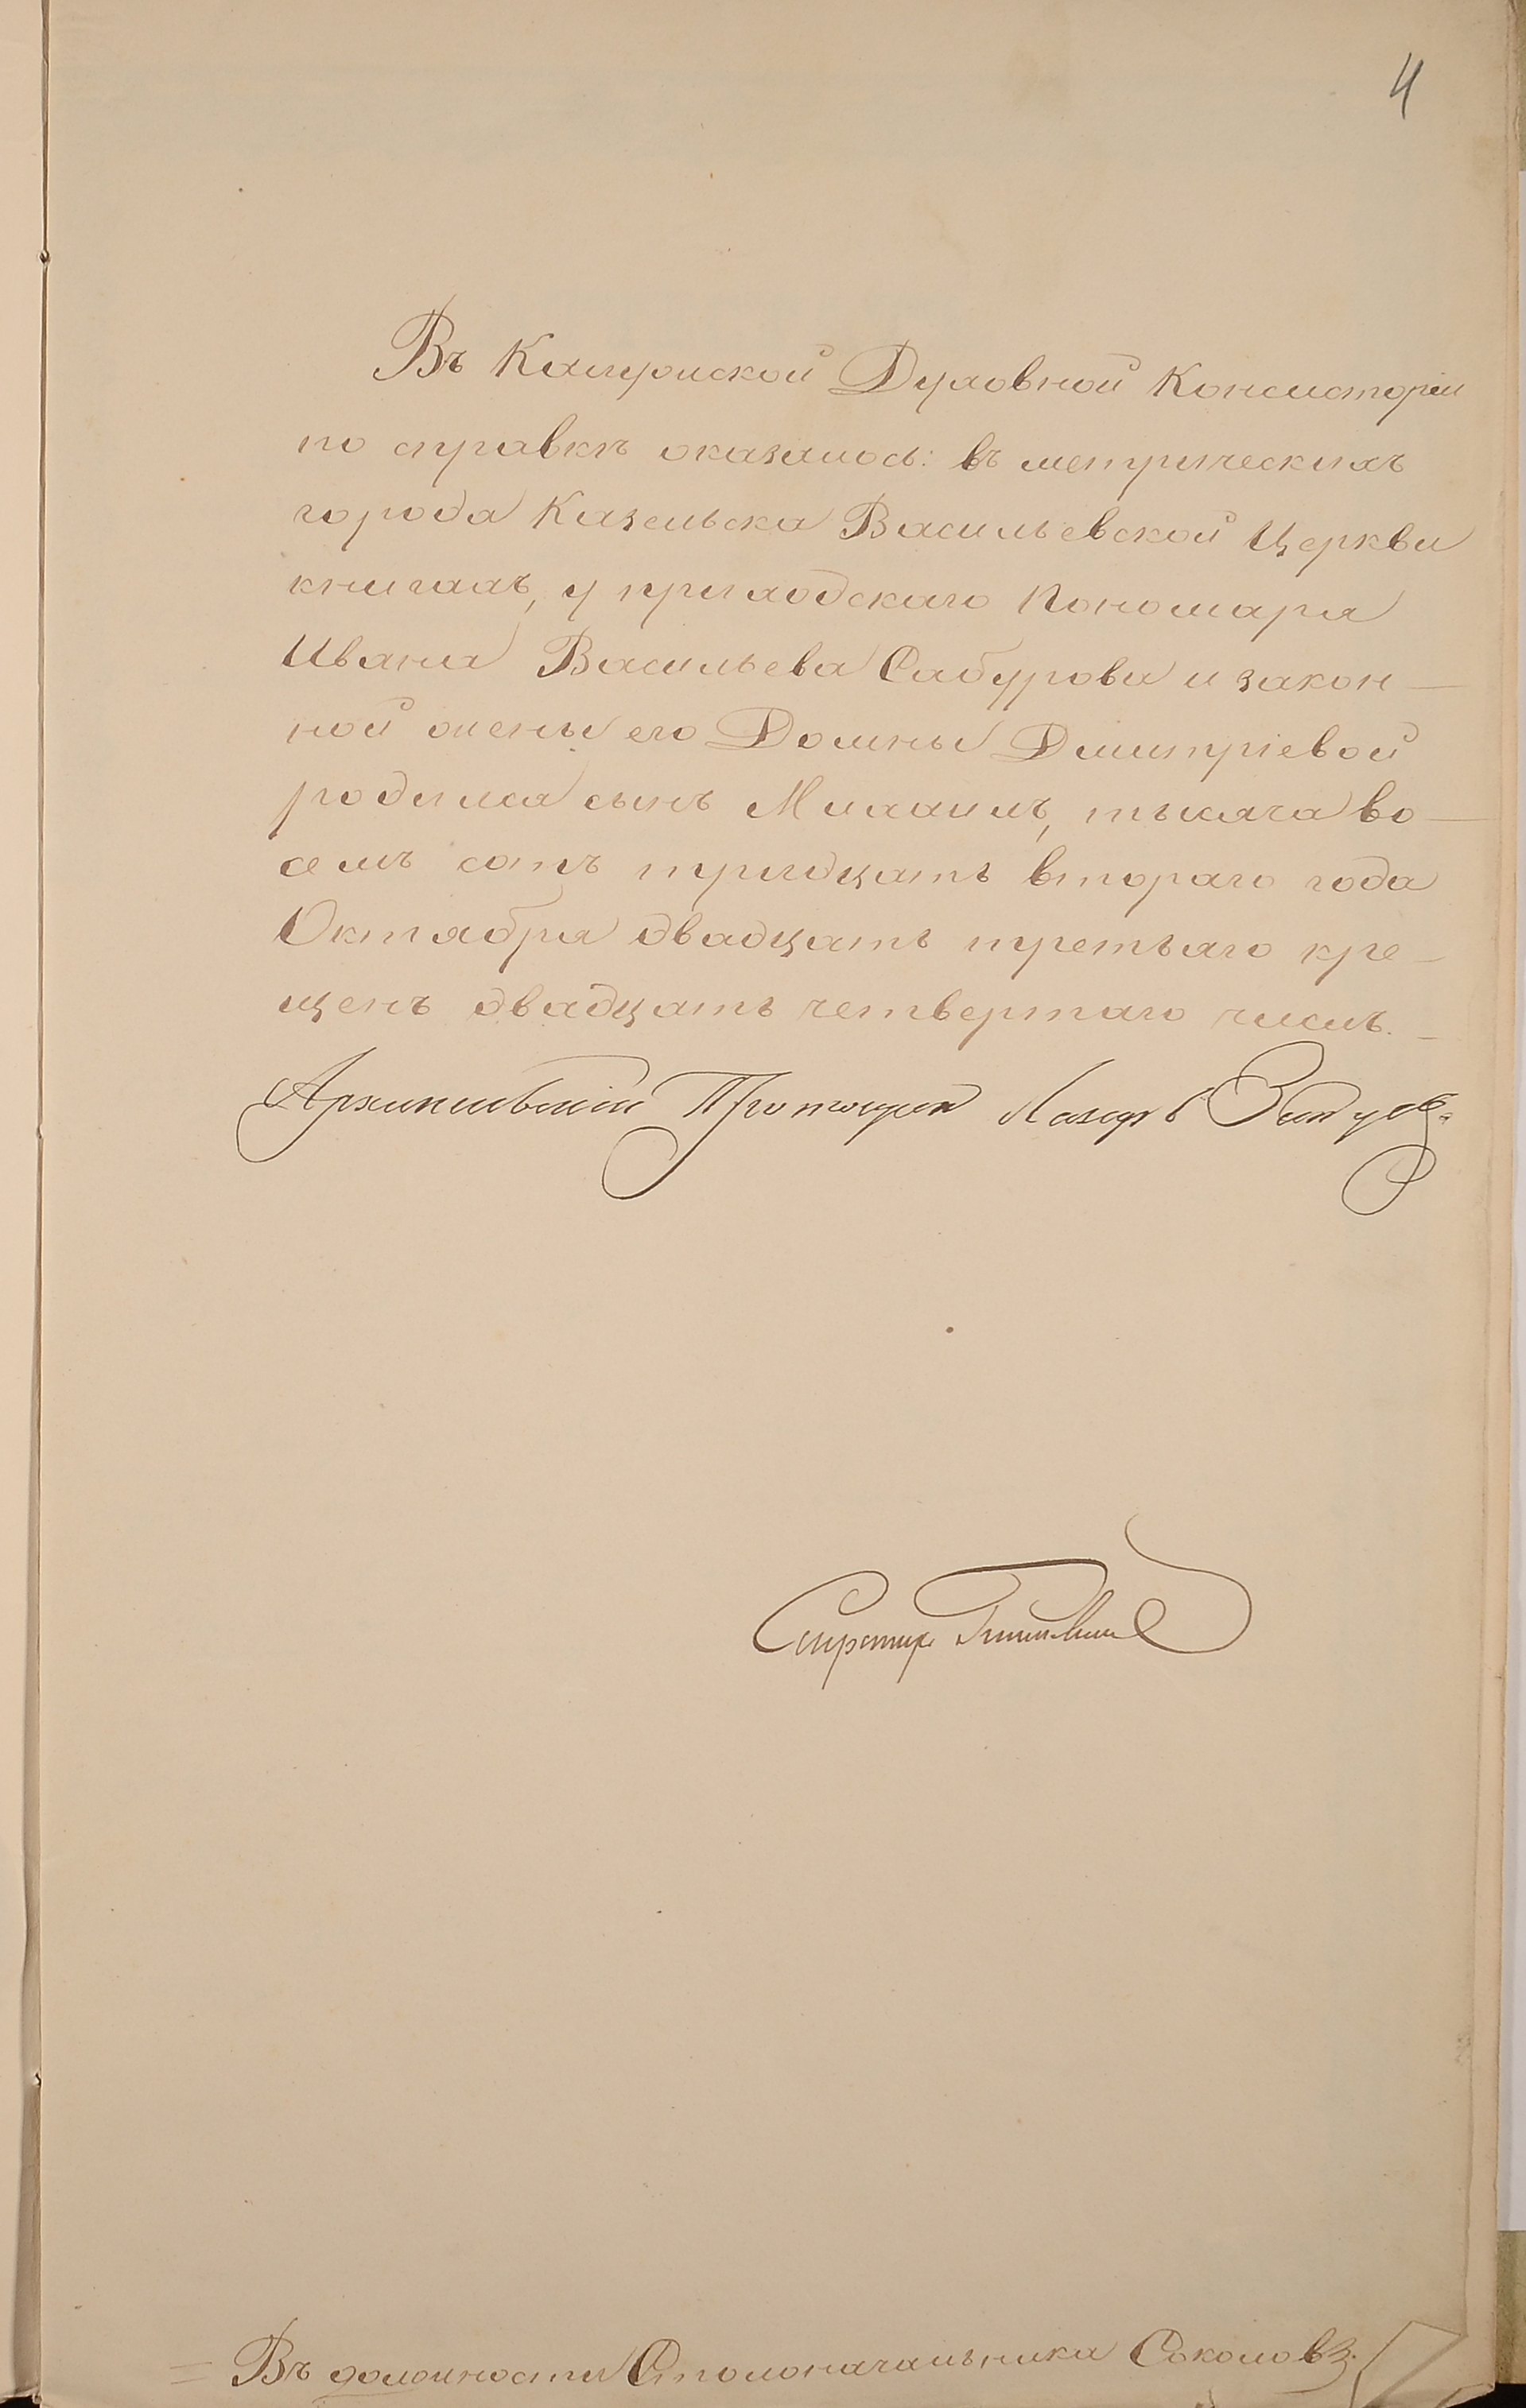 4
Въ Калужской Духовной Консисторіи
по справкѣ оказалось: въ метрическихъ
города Казельска Васильевской Церкви
книгахъ, у приходскаго Пономаря
Ивана Васильева Сабурова и закон—
ной жены его Домны Димитріевой
родился сынъ Михаилъ, тысяча во—
семъ сотъ тридцать втораго года
Октября двадцать третьяго кре—
щенъ двадцать четвертаго числъ.—
Протоіерей Лазарь
Секретарь
= Въ должности Столоначальника Соколовъ